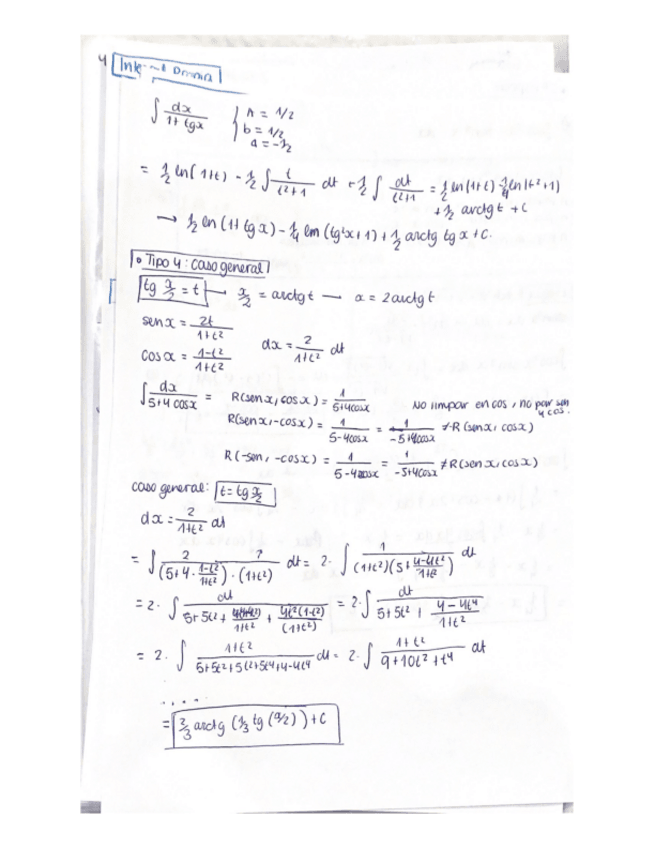 4
∫ dx/(1+tgx) { A = 1/2
b = 1/2
a = -1/2
= 1/2 ln(1+t) - 1/2 ∫ t/(t²+1) dt + 1/2 ∫ dt/(t²+1) = 1/2 ln(1+t) - 1/4 ln(t²+1)
+ 1/2 arctg t + C
→ 1/2 ln (1+tgx) - 1/4 ln (tg²x+1) + 1/2 arctg tgx + C.
• Tipo 4: caso general
tg x/2 = t → x/2 = arctgt → x = 2arctgt
senx = 2t/(1+t²)
cosx = (1-t²)/(1+t²) dx = 2/(1+t²) dt
∫ dx/(5+4cosx) = R(senx, cosx) = 1/(5+4cosx) No impar en cos, no par sen
y cos.
R(senx, -cosx) = 1/(5-4cosx) = 1/(-5+4cosx) ≠ -R(senx, cosx)
R(-sen, -cosx) = 1/(5-4cosx) = 1/(-5+4cosx) ≠ R(senx, cosx)
caso general: t = tg x/2
dx = 2/(1+t²) dt
= ∫ 2/((5+4·(1-t²)/(1+t²))·(1+t²)) dt = 2· ∫ 1/((1+t²)(5+(4-4t²)/(1+t²))) dt
= 2· ∫ dt/(5+5t²+ + 4t²(1-t²)/(1+t²)) = 2· ∫ dt/(5+5t²+(4-4t⁴)/(1+t²))
= 2· ∫ (1+t²)/(5+5t²+5t²+5t⁴+4-4t⁴) dt = 2· ∫ (1+t²)/(9+10t²+t⁴) dt
.....
= 2/3 arctg (1/3 tg (x/2)) + C